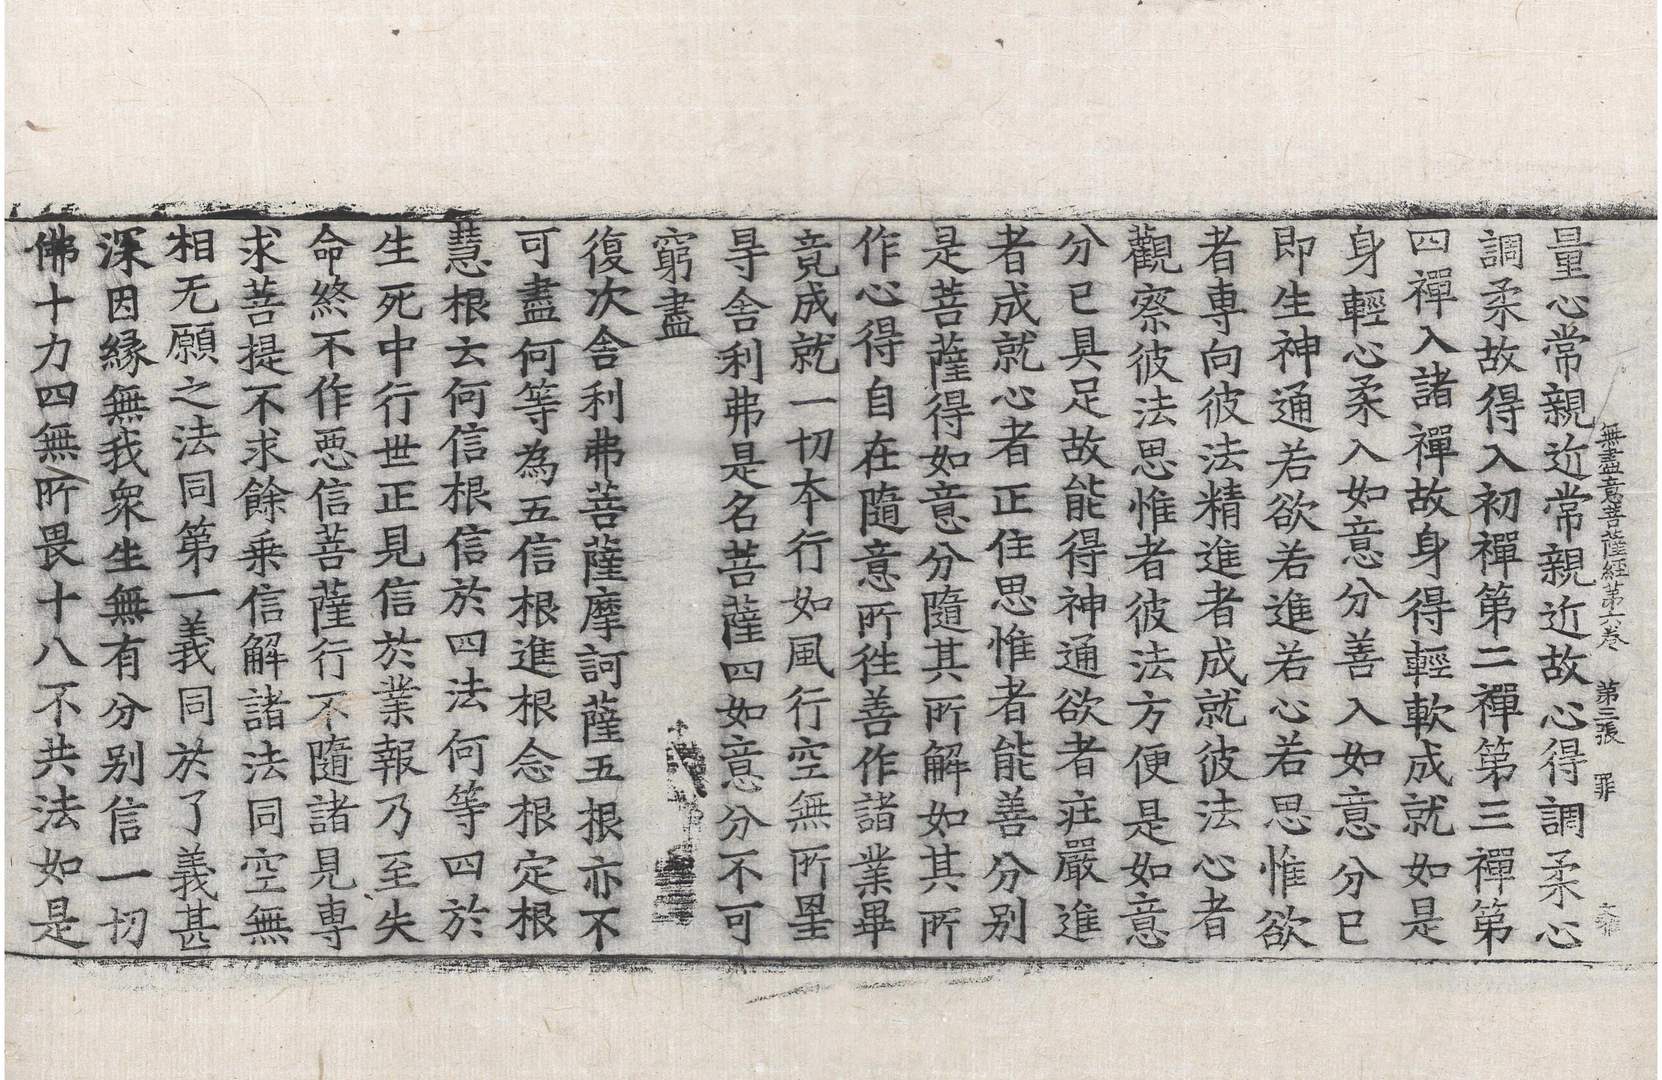 無盡意菩薩経苐六卷　苐三張　罪
量心常親近常親近故心得調柔心
調柔故得入初禪第二禪第三禪第
四禪入諸禪故身得輕軟成就如是
身輕心柔入如意分善入如意分已
即生神通若欲若進若心若思惟欲
者専向彼法精進者成就彼法心者
觀察彼法思惟者彼法方便是如意
分已具足故能得神通欲者疘嚴進
者成就心者正住思惟者能善分别
是菩薩得如意分隨其所解如其所
作心得自在隨意所徃善作諸業畢
竟成就一切夲行如風行空無所罣
㝵舎利弗是名菩薩四如意分不可
窮盡
復次舎利弗菩薩摩訶薩五根亦不
可盡何等為五信根進根念根定根
慧根云何信根信於四法何等四於
生死中行世正見信於業報乃至失
命終不作悪信菩薩行不隨諸見専
求菩提不求餘乗信解諸法同空無
相无願之法同第一義同於了義甚
深因縁無我衆生無有分别信一切
佛十力四無所畏十八不共法如是